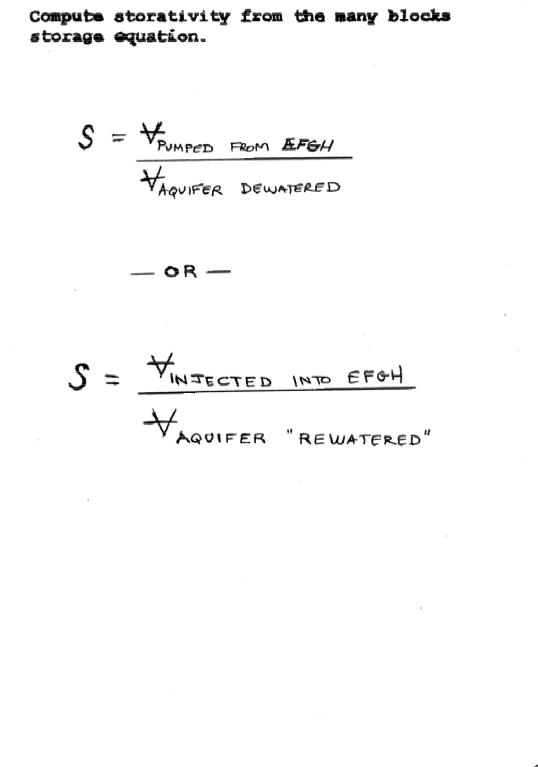 Compute storativity from the many blocks
storage equation.
S = V PUMPED FROM EFGH
V AQUIFER DEWATERED
— OR —
S = V INJECTED INTO EFGH
V AQUIFER "REWATERED"